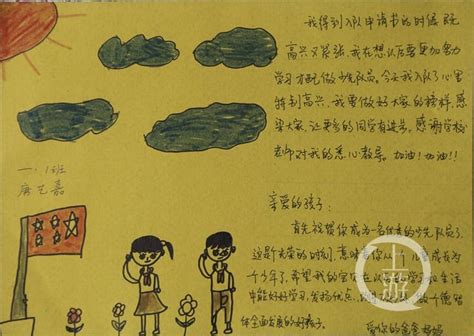 我得到入队申请书的时候既
高兴又紧张,我在想以后要更加努力
学习才配做少先队员。今天我入队了心里
特别高兴,我要做好大家的榜样感
染大家,让更多的同学有进步。感谢学校
老师对我的悉心教导。加油!加油!!
一.1班
唐艺嘉
亲爱的孩子:
首先祝贺你成为一名优秀的少先队员了,
这是光荣的时刻,意味着你从
个少年了,希望我的宝贝在以 学习和生活
中能好好学习,发扬 做一个德智
体全面发展的好孩子。
爱你的爸爸妈妈